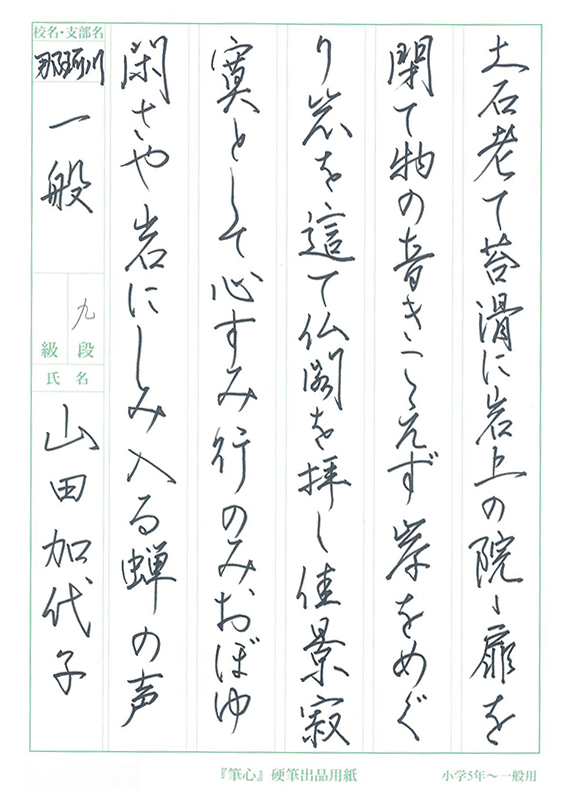 土石老て苔滑に岩上の院々扉を
閉て物の音きこえず岸をめぐ
り岩を這て仏閣を拝し佳景寂
寞として心すみ行のみおぼゆ
閑さや岩にしみ入る蝉の声
校名・支部名
那珂川
一般
九
級 段
氏 名
山田加代子
『筆心』硬筆出品用紙
小学5年～一般用